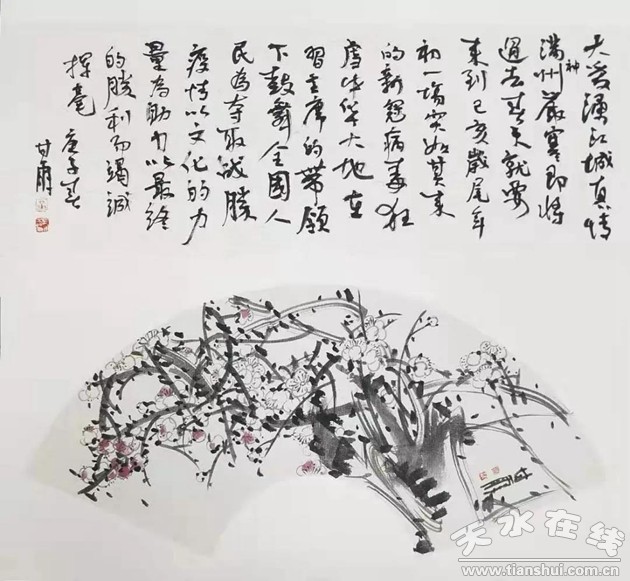 大爱漫江城真情
滿神州嚴寒即將
過去春天就要
来到己亥歲尾年
初一場突如其来
的新冠病毒狂
虐中华大地在
習主席的带領
下鼓舞全國人
民為夺取战勝
疫情以文化的力
量為助力以最終
的勝利而竭誠
揮毫 庚子春
甘肅
天水在线
www.tianshui.com.cn